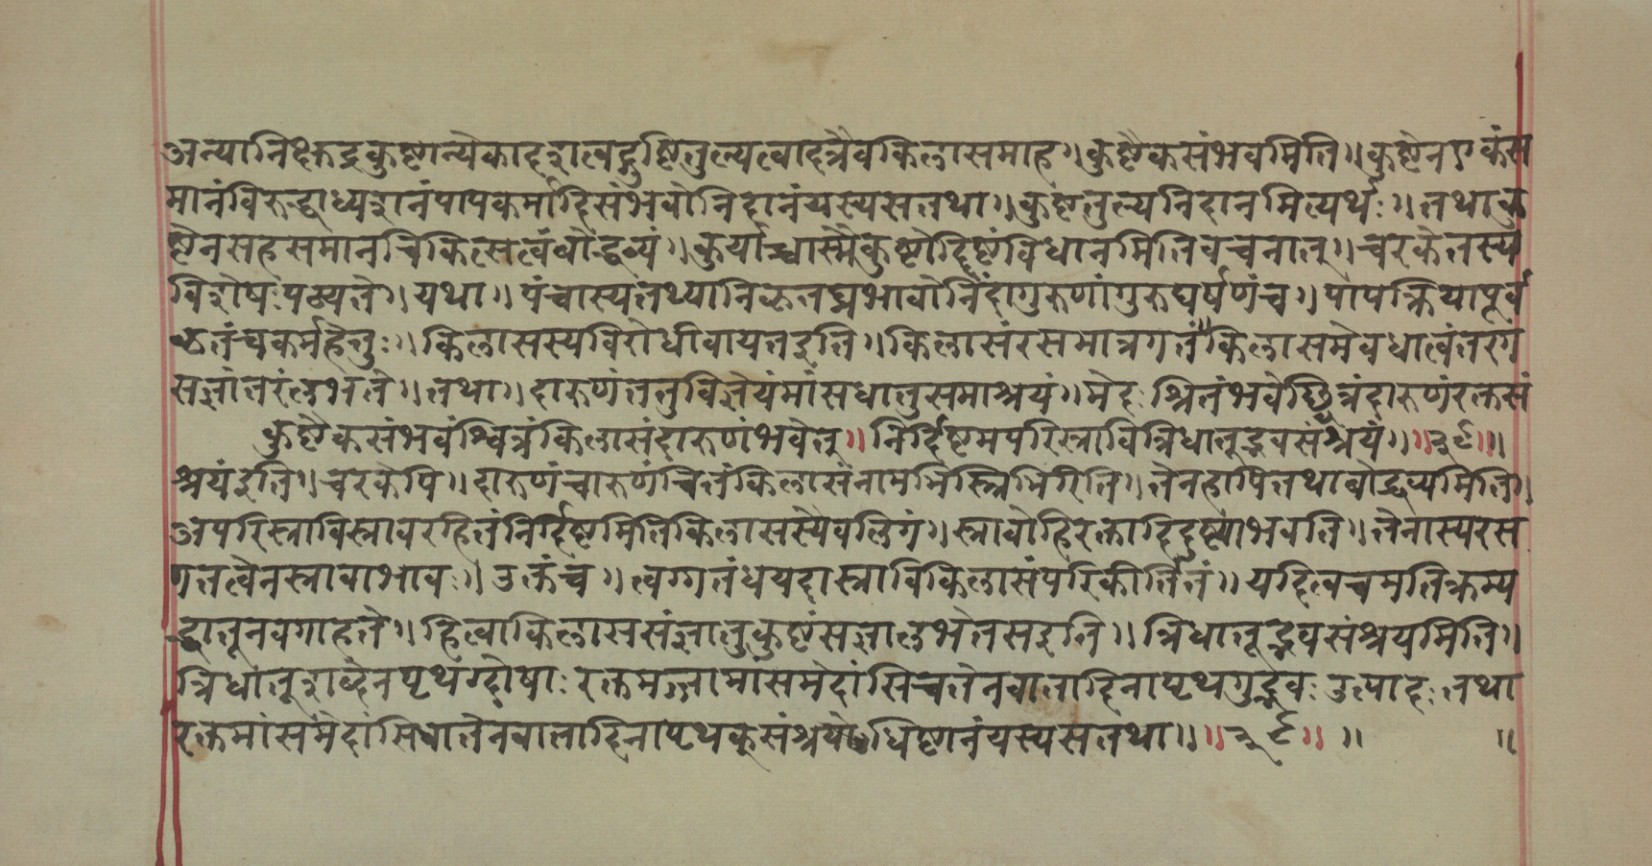 अन्यानिक्षुद्रकुष्टान्येकादशत्वद्दुष्टितुल्यत्वादत्रैवकिलासमाह। कुष्टैकसंभवमिति॥ कुष्टेनएकंस
मानंविरुद्धाध्यशनंपापकर्मादिसंभवोनिदानंयस्यसतथा। कुष्टतुल्यनिदानमित्यर्थः॥ तथाकु
ष्टेनसहसमानचिकित्सत्वंबोद्धव्यं। कुर्याच्चास्मैकुष्टोद्दिष्टंविधानमितिवचनात्॥ चरकेतस्य
विशेषःपठ्यते। यथा॥ पंचास्यतथ्यानिकृतघ्नभावोनिंदागुरूणांगुरुघर्षणंच॥ पापक्रियापूर्व
कृतंचकर्महेतुः॥ किलासस्यविरोधीवायतइति। किलासंरसमात्रगतं किलासमेवधात्वंतरग
सज्ञांतरंलभते॥ तथा॥ दारुणंतत्तुविज्ञेयंमांसधातुसमाश्रयं॥ मेदःश्रितंभवेच्छ्वित्रंदारुणंरक्तसं
कुष्टैकसंभवंश्वित्रंकिलासंदारुणंभवेत्॥ निर्दिष्टमपरिस्रावित्रिधातूद्भवसंश्रयं॥ ॥३८॥
श्रयंइति॥ चरकेपि॥ दारुणंचारुणंश्वित्रंकिलासंनामभिस्त्रिभिरिति॥ तेनहापितथाबोद्धव्यमिति॥
अपरिस्राविस्रावरहितंनिर्दिष्टमितिकिलासस्यैवलिगं॥ स्रावोहिरक्तादिदुष्ट्यांभवति। तेनास्यरस
गतत्वेनस्रावाभावः॥ उक्तंच॥ त्वग्गतंधयदास्राविकिलासंपरिकीर्तितं॥ यदित्वचमतिक्रम्य
द्धातूनवगाहते॥ हित्वाकिलाससंज्ञांतुकुष्टंसज्ञांलभेतसइति॥ त्रिधातूद्भवसंश्रयमिति।
त्रिधातूशब्देनपृथग्दोषाः रक्तमज्जामांसमेदांसिचतेनवातादिनापृथगुद्भवः उत्पादः तथा
रक्तमांसमेदांसिधातेनवातादिनापृथक्संश्रयोधिष्टानंयस्यसतथा॥ ॥३८॥ ॥ ॥